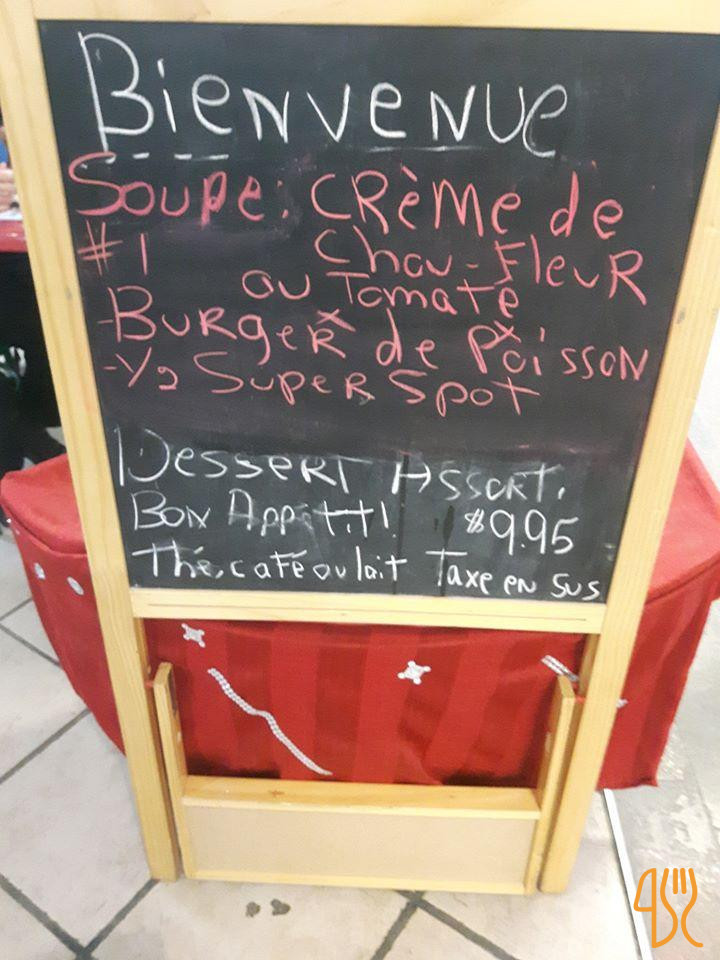 BIENVENUE
SOUPE: CRèME de
#1 Chou-FleuR
ou Tomate
-BURGER de POISSON
-1/2 SUPER SPOT
DESSERT ASSORT.
BON Appétit! $9.95
Thé, café ou lait Taxe en sus